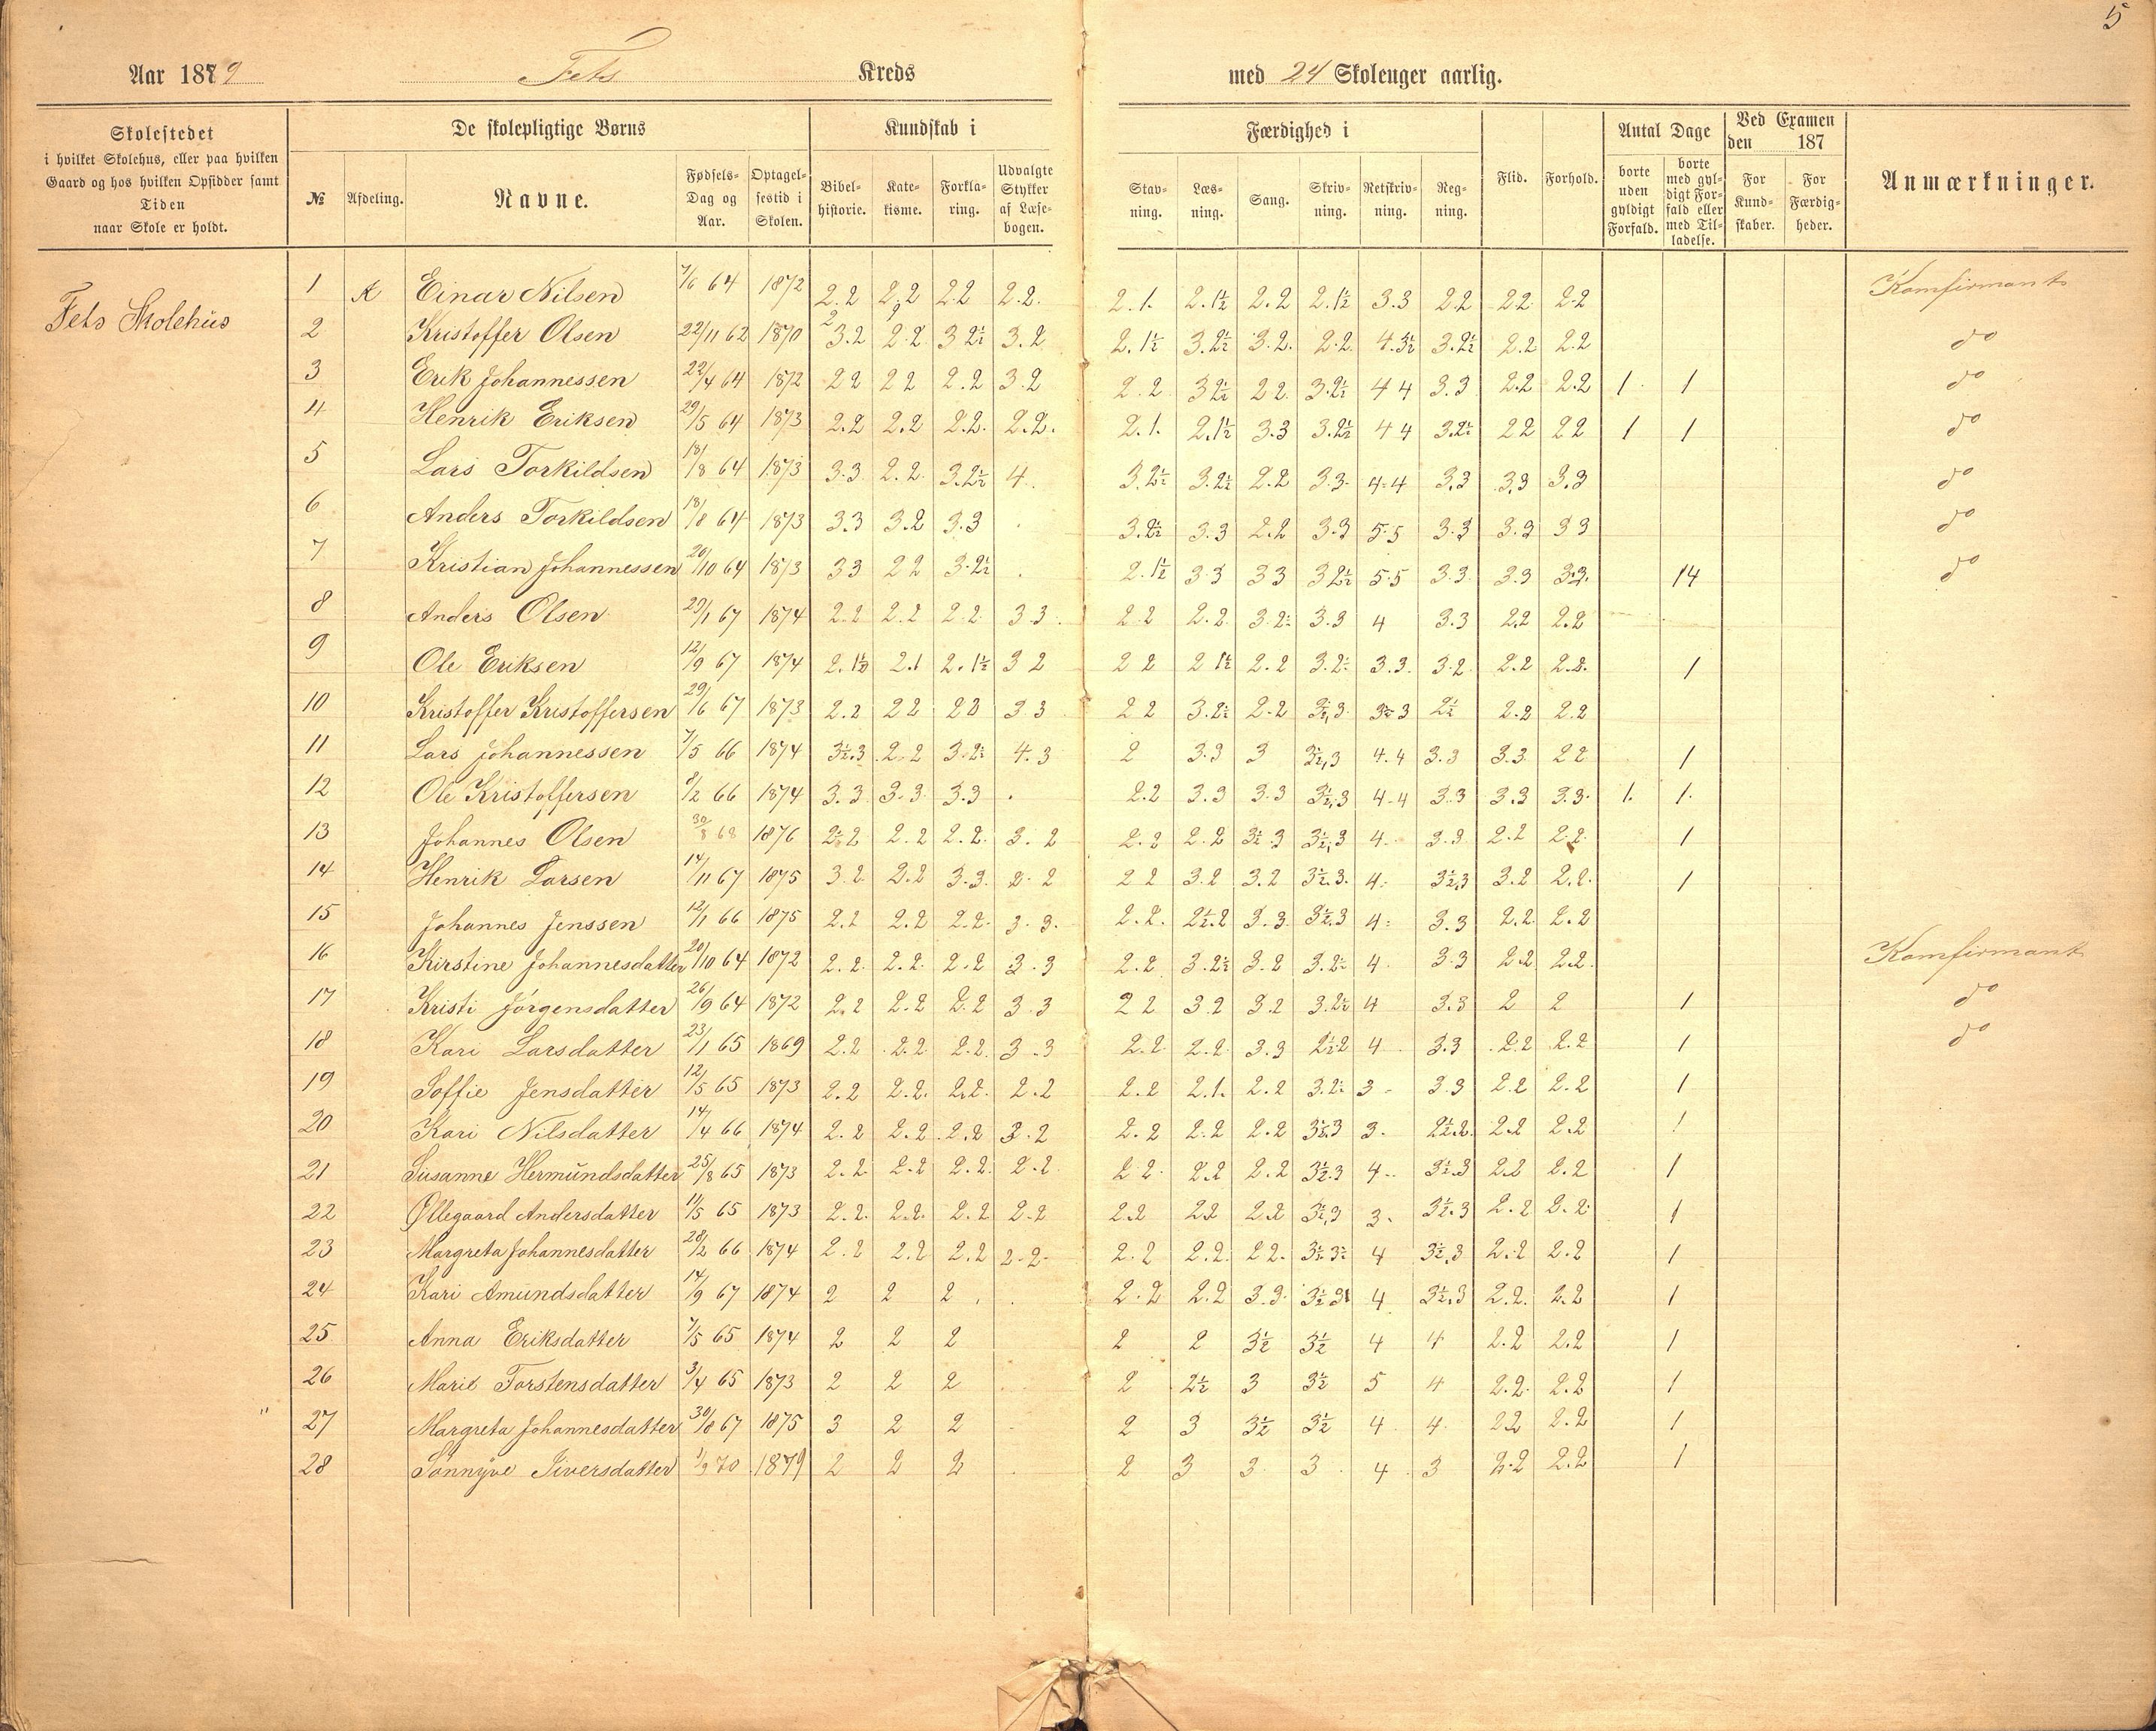 5
Aar 1879 Fets Kreds med 24 Skoleuger aarlig.
Skolestedet
i hvilket Skolehus, eller paa hvilken
Gaard og hos hvilken Opsidder samt
Tiden
naar Skole er holdt.
De skolepligtige Børns
№ Afdeling. Navne. Fødsels-Dag og Aar. Optagelsestid i Skolen.
Kundskab i
Bibelhistorie. Katekisme. Forklaring. Udvalgte Stykker af Læsebogen.
Færdighed i
Stavning. Læsning. Sang. Skrivning. Retskrivning. Regning.
Flid. Forhold.
Antal Dage
borte uden gyldigt Forfald. borte med gyldigt Forfald eller med Tilladelse.
Ved Examen den 187
For Kundskaber. For Færdigheder.
Anmærkninger.
Fets Skolehus
1 K Einar Nilsen 7/6 64 1872 2.2 2.2 2.2 2.2. 2.1. 2.1½ 2.2 2.1½ 3.3 2.2 2.2 2.2 Komfirmant
2 Kristoffer Olsen 22/11 62 1870 3.2 2.2 3 2½ 3.2 2.1½ 3.2½ 3.2. 2.2 4.3½ 3.2½ 2.2 2.2 do
3 Erik Johannessen 22/4 64 1872 2 2 2 2 2.2 3.2 2.2 3 2½ 2 2 3.2½ 4 4 3.3 2.2 2.2 1 1 do
4 Henrik Eriksen 29/5 64 1873 2.2 2.2 2.2. 2.2. 2.1. 2.1½ 3.3 3.2½ 4 4 3.2½ 2 2 2 2 1 1 do
5 Lars Torkildsen 18/8 64 1873 3.3 2.2 3.2½ 4. 3.2½ 3.2½ 2.2 3.3. 4-4 3.3 3.3 3.3 do
6 Anders Torkildsen 18/8 64 1873 3.3 3.2 3.3 . 3.2½ 3.3 2.2 3.3 5.5 3.3 3.3 3 3 do
7 Kristian Johannessen 20/10 64 1873 3 3 2 2 3.2½ . 2.1½ 3.3 3 3 3 2½ 5.5 3.3 3.3 3.3. 14 do
8 Anders Olsen 29/1 67 1874 2.2 2.2 2.2 3 3 2 2 2.2 3.2½ 3.3 4 3.3 2.2 2.2
9 Ole Eriksen 12/9 67 1874 2.1½ 2.1 2.1½ 3 2 2 2 2 1½ 2.2 3.2½ 3.3. 3.2 2.2 2.2. 1
10 Kristoffer Kristoffersen 29/6 67 1873 2.2 2 2 2 2 3 3 2 2 3.2½ 2.2 3½,3 3½ 3 2½ 2.2 2.2
11 Lars Johannessen 7/5 66 1874 3½.3 2.2 3.2½ 4.3 2 3.3 3 3½,3 4.4 3.3 3.3 2 2 1
12 Ole Kristoffersen 8/2 66 1874 3.3 3.3 3.3 . 2.2 3.3 3.3 3½,3 4-4 3.3 3.3 3.3 1. 1.
13 Johannes Olsen 30/8 68 1876 2½ 2 2.2 2.2. 3.2 2.2 2.2 3½.3 3½,3 4. 3.3 2.2 2.2 1
14 Henrik Larsen 14/11 67 1875 3.2 2.2 3.3. 2.2 2 2 3.2 3.2 3½.3. 4. 3½,3 3.2 2.2. 1
15 Johannes Jenssen 12/1 66 1875 2.2 2.2 2.2. 3.3. 2.2. 2½.2 3.3. 3½.3 4. 3.3 2.2. 2.2
16 Kirstine Johannesdatter 20/10 64 1872 2.2. 2.2. 2.2 3.3 2.2 3.2½ 3.2 3.2½ 4. 3.3 2.2 2.2. Komfirmant
17 Kristi Jørgensdatter 26/9 64 1872 2.2 2.2 2.2 3.3 2 2 3.2 3.2 3.2½ 4 3.3 2 2 1 do
18 Kari Larsdatter 23/1 65 1869 2.2 2.2 2.2. 3.3 2.2 2.2 3.3 2½.2 4 3.3 2.2 2.2 1 do
19 Soffie Jensdatter 12/5 65 1873 2.2 2.2. 2.2. 2.2 2.2 2.1. 2.2 3.2½ 3- 3.3 2.2 2.2 1
20 Kari Nilsdatter 14/4 66 1874 2.2 2.2. 2.2 3.2 2.2 2.2 2.2 3½.3 3. 2½.2. 2.2 2.2 1
21 Susanne Hermundsdatter 25/8 65 1873 2.2. 2.2 2.2. 2.2 2 2. 2.2 2.2 3½.3 4-. 3½.3 2.2 2.2 1
22 Ollegaard Andersdatter 11/5 65 1873 2.2. 2.2. 2.2 2.2 2.2 2 2 2.2 3½,3 3. 3½.3 2.2 2.2 1
23 Margreta Johannesdatter 28/2 66 1874 2.2 2.2 2.2 2-2- 2.2 2.2. 2 2. 3½.3½ 4 3½,3 2.2 2.2 1
24 Kari Amundsdatter 14/9 67 1874 2 2 2 . 2.2 2.2 3.3. 3½ 3 4 3½.3 2.2. 2.2 1
25 Anna Eriksdatter 7/5 65 1874 2 2 2 2 2 3½ 3½ 4 4 2.2 2.2 1
26 Marie Torstensdatter 3/4 65 1873 2 2 2 2 2½ 3 3½ 5 4 2.2. 2.2 1
27 Margreta Johannesdatter 30/8 67 1875 3 2 2 2 3 3½ 3½ 4 4. 2 2 2.2 1
28 Sønnyve Siversdatter 1/9 70 1879 2 2 2 2 3 3 3 4 3 2.2 2.2 1